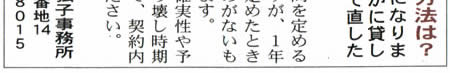 方法は？
になりま
かに貸し
て直した
間を定める
が、1年
めたとき
がないも
ます。
確実性や予
壊し時期
、契約内
ださい。
子事務所
番地14
8015